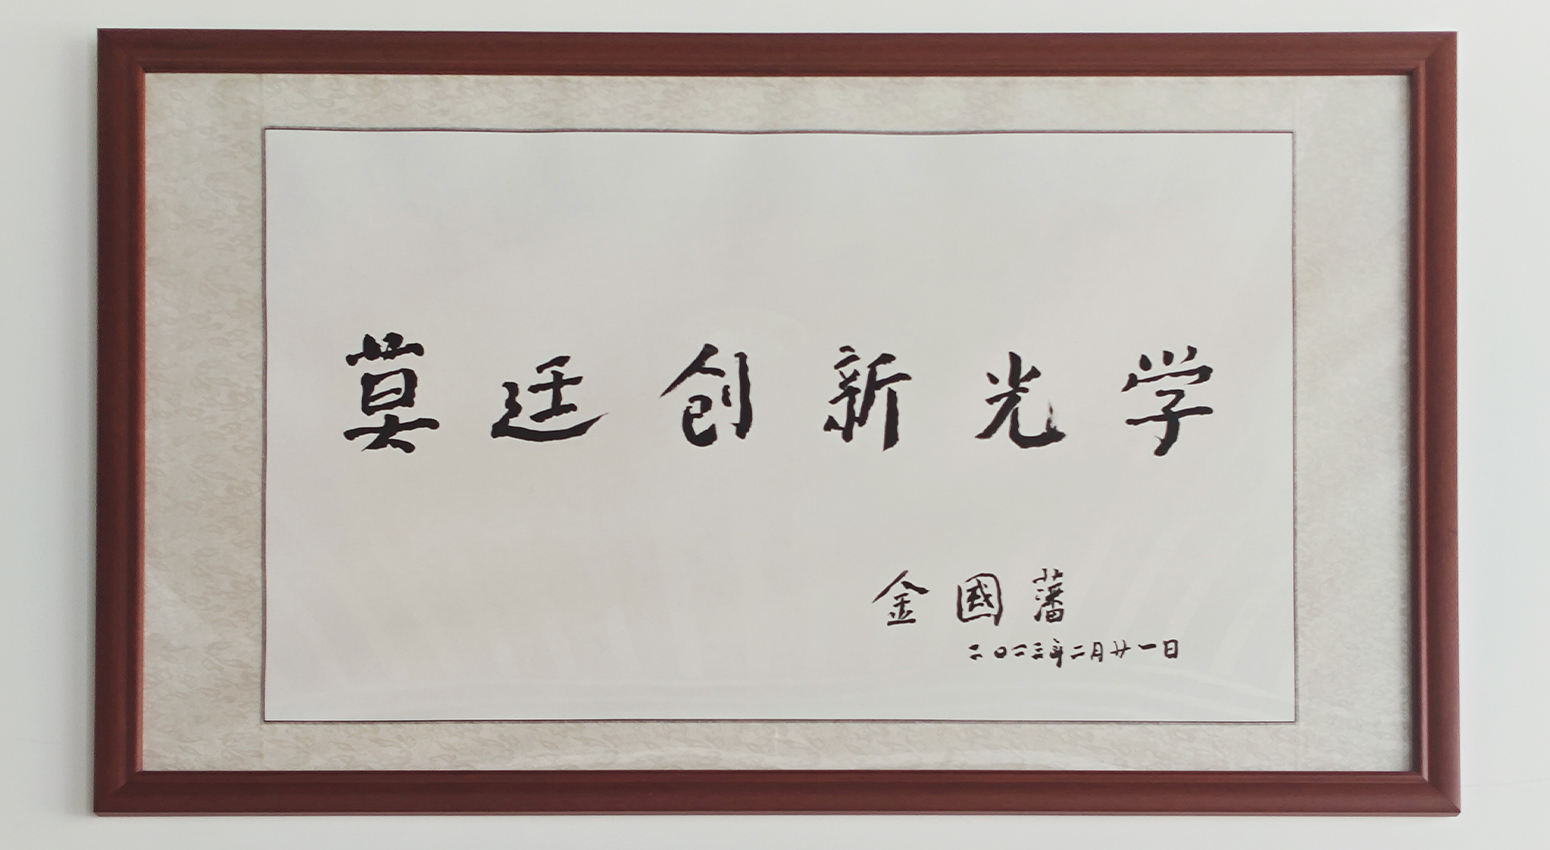 莫廷创新光学
金國藩
二〇二三年二月廿一日